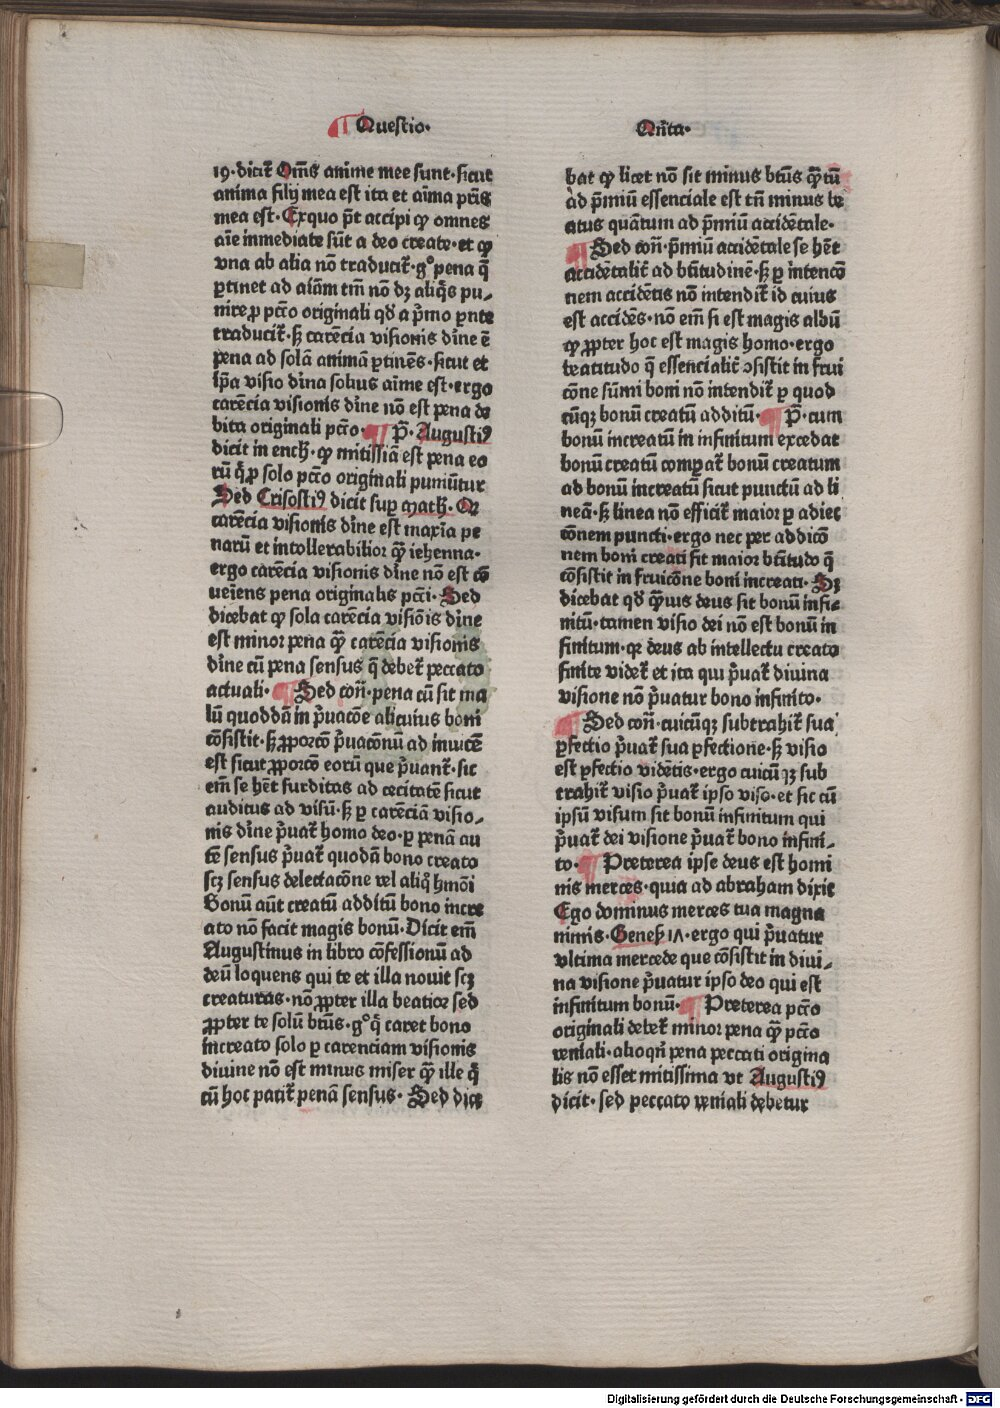 ¶ Questio·
Qñta·
19·dicit᷑ Om̄s anime mee sunt·sicut
anima filij mea est ita et aīma pr̄is
mea est·Exquo pōt accipi ꝙ omnes
aīe inmediate sūt a deo create·et ꝙ
vna ab alia nō traducit᷑·g°pena q̄
ꝑtinet ad aīam tm̄ nō dꝫ aliq̄s pu⸗
nire ꝓ pctō originali qd̄ a p̄mo ꝑnte
traducit᷑·sꝫ carēcia visionis dīne ē
pena ad solā animā ꝑtinēs·sicut et
ip̄a visio dīna solius aīme est·ergo
carēcia visionis dīne nō est pena de
bita originali pctō·¶ P̄·Augusti9
dicit in ench·ꝙ mitissiā est pena eo
rū q̄ ꝓ solo pctō originali puniūtur
Sed Crisosti9 dicit suꝑ math·Q
carēcia visionis dīne est maxīa pe
narū et intollerabilior q̄ꝫ iehenna·
ergo carēcia visionis dīne nō est cō
ueīens pena originalis pctī·Sed
dicebat ꝙ sola carēcia visiōis dīne
est minor pena q̄ꝫ carēcia visionis
dīne cū pena sensus q̄ debet᷑ peccato
actuali·¶ Sed con̄·pena cū sit ma
lū quoddā in p̄uacōe alicuius boni
cōsistit·sꝫ ꝓporcō p̄uacōnū ad inuicē
est sicut ꝓporcō eorū que p̄uant᷑·sic
em̄ se hēt surditas ad cecitatē sicut
auditus ad visū·sꝫ ꝑ carēciā visio⸗
nis dīne p̄uat᷑ homo deo·ꝑ penā au
tē sensus p̄uat᷑ quodā bono creato
scꝫ sensus delectacōne vel aliq̄ hmōi
Bonū aūt creatū additū bono incre
ato nō facit magis bonū·Dicit em̄
Augustinus in libro cōfessionū ad
deū loquens qui te et illa nouit scꝫ
creaturas·nō ꝓpter illa beatior sed
ꝓpter te solū bt̄us·g°q̄ caret bono
increato solo ꝑ carenciam visionis
diuine nō est minus miser q̄ꝫ ille q̄
cū hoc patit᷑ penā sensus·Sed dice
bat ꝙ licet nō sit minus bt̄us q̄ꝫtū
ad p̄miū essenciale est tn̄ minus be
atus quātum ad p̄miū accidētale·
¶ Sed con̄·p̄miū accidētale se hēt
accidētalit᷑ ad bt̄itudinē·sꝫ ꝑ intencō
nem accidētis nō intendit᷑ id cuius
est accidēs·nō em̄ si est magis albū
ꝙ ꝓpter hoc est magis homo·ergo
beatitudo q̄ essencialit᷑ ꝯsistit in frui
cōne sūmi boni nō intendit᷑ ꝑ quod
cūqꝫ bonū creatū additū·¶ P̄·cum
bonū increatū in infinitum excedat
bonū creatū compat᷑ bonū creatum
ad bonū increatū sicut punctū ad li
neā·sꝫ linea nō efficit᷑ maior ꝑ adiec
cōnem puncti·ergo nec per addicō
nem boni creati fit maior bt̄itudo q̄
cōsistit in fruicōne boni increati·Sꝫ
dicebat qd̄ q̄ꝫuis deus sit bonū infi⸗
nitū·tamen visio dei nō est bonū in
finitum·qꝛ deus ab intellectu creato
finite videt᷑ et ita qui p̄uat᷑ diuina
visione nō p̄uatur bono infinito·
¶ Sed con̄·cuicūqꝫ subtrahit᷑ sua
ꝑfectio p̄uat᷑ sua ꝑfectione·sꝫ visio
est ꝑfectio vidētis·ergo cuicū qꝫ sub
trahit᷑ visio p̄uat᷑ ipso viso·et sic cū
ipsū visum sit bonū infinitum qui
p̄uat᷑ dei visione p̄uat᷑ bono infini⸗
to·¶ Preterea ipse deus est homi
nis merces·quia ad abraham dixit
Ego dominus merces tua magna
nimis·Genes 1Λ·ergo qui p̄uatur
vltima mercede que cōsistit in diui⸗
na visione p̄uatur ipso deo qui est
infinitum bonū·¶ Preterea pctō
originali debet᷑ minor pena q̄ꝫ pctō
veniali·alioqn̄ pena peccati origina
lis nō esset mitissima vt Augusti9
dicit·sed peccato veniali debetur
Digitalisierung gefördert durch die Deutsche Forschungsgemeinschaft · DFG